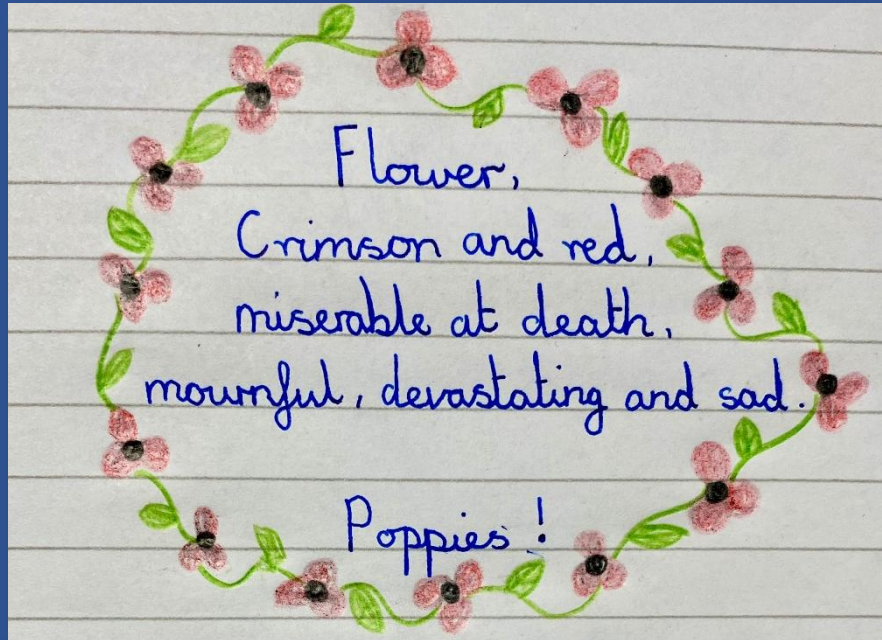 Flower,
Crimson and red,
miserable at death,
mournful, devastating and sad.
Poppies!